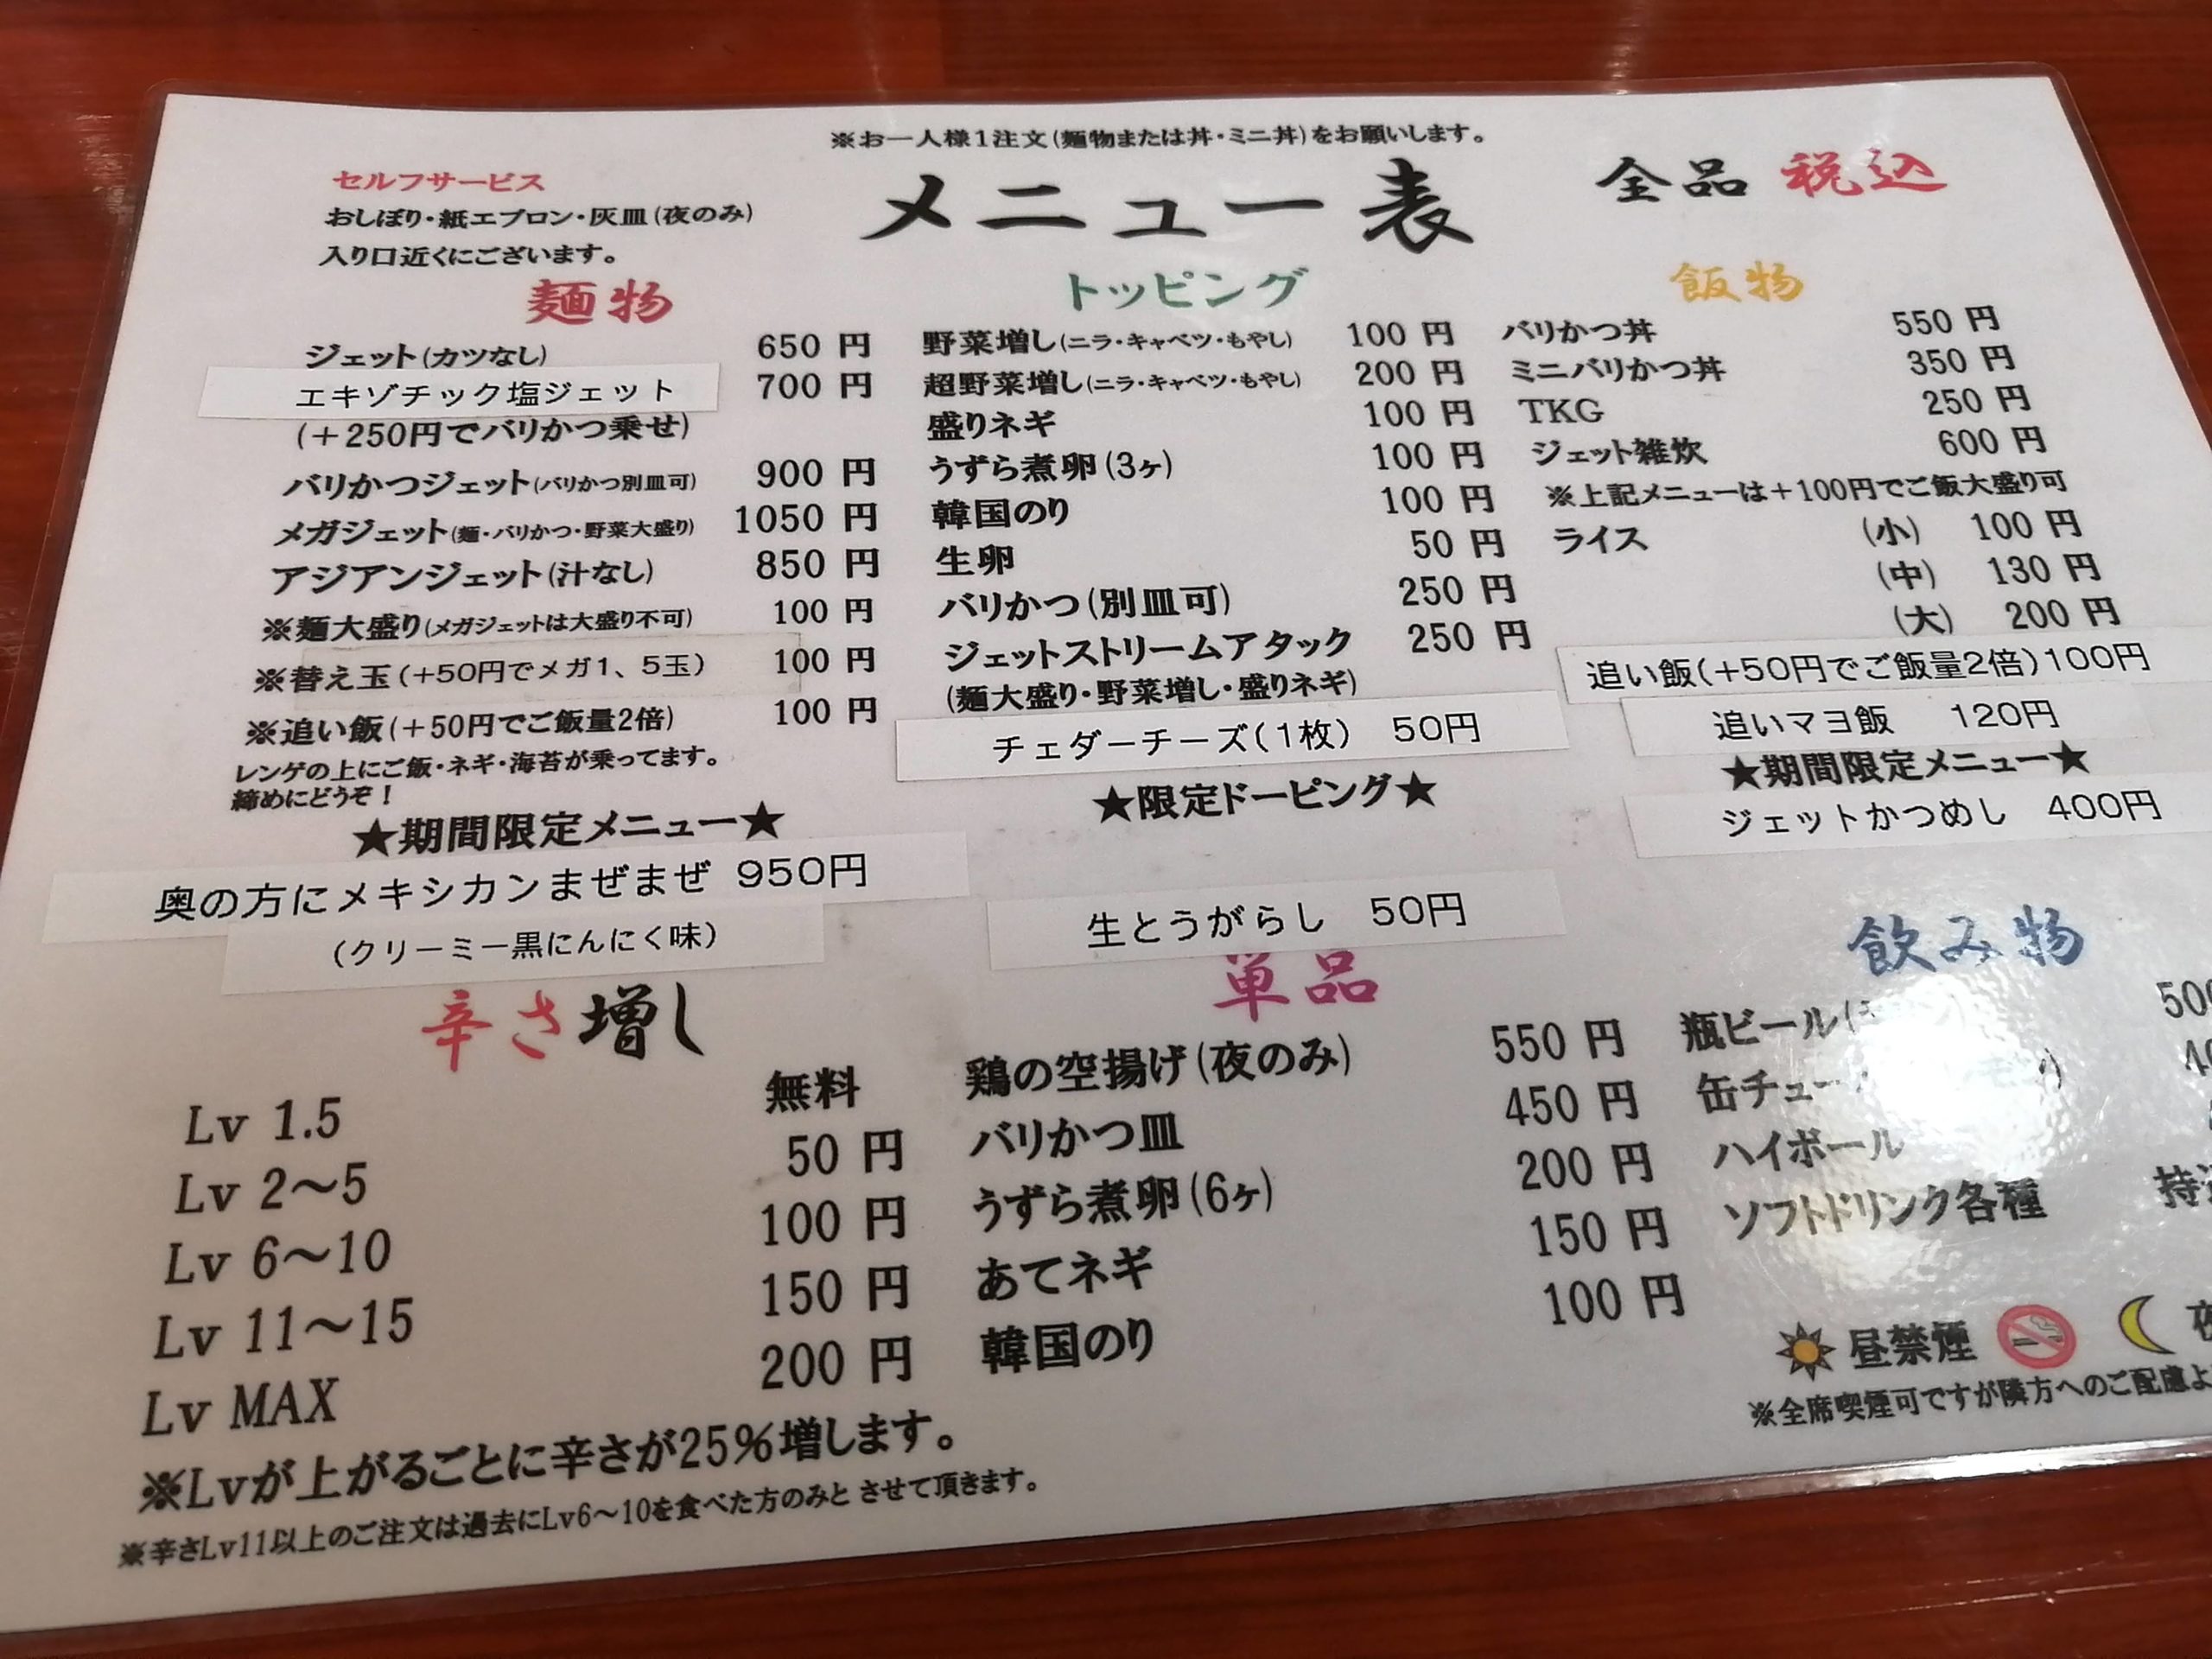 ※お一人様1注文(麺物または丼・ミニ丼)をお願いします。
セルフサービス
おしぼり・紙エプロン・灰皿(夜のみ)
入り口近くにございます。
メニュー表
全品 税込
麺物
ジェット(カツなし) 650 円
エキゾチック塩ジェット 700 円
(+250円でバリかつ乗せ)
バリかつジェット(バリかつ別皿可) 900 円
メガジェット(麺・バリかつ・野菜大盛り) 1050 円
アジアンジェット(汁なし) 850 円
※麺大盛り(メガジェットは大盛り不可) 100 円
※替え玉(+50円でメガ1、5玉) 100 円
※追い飯(+50円でご飯量2倍) 100 円
レンゲの上にご飯・ネギ・海苔が乗ってます。
締めにどうぞ!
★期間限定メニュー★
奥の方にメキシカンまぜまぜ 950円
(クリーミー黒にんにく味)
トッピング
野菜増し(ニラ・キャベツ・もやし) 100 円
超野菜増し(ニラ・キャベツ・もやし) 200 円
盛りネギ 100 円
うずら煮卵(3ヶ) 100 円
韓国のり 100 円
生卵 50 円
バリかつ(別皿可) 250 円
ジェットストリームアタック 250 円
(麺大盛り・野菜増し・盛りネギ)
チェダーチーズ(1枚) 50円
★限定ドーピング★
生とうがらし 50円
飯物
バリかつ丼 550 円
ミニバリかつ丼 350 円
TKG 250 円
ジェット雑炊 600 円
※上記メニューは+100円でご飯大盛り可
ライス (小) 100 円
(中) 130 円
(大) 200 円
追い飯(+50円でご飯量2倍)100円
追いマヨ飯 120円
★期間限定メニュー★
ジェットかつめし 400円
辛さ増し
Lv 1.5 無料
Lv 2～5 50 円
Lv 6～10 100 円
Lv 11～15 150 円
Lv MAX 200 円
※Lvが上がるごとに辛さが25%増します。
※辛さLv11以上のご注文は過去にLv6～10を食べた方のみと させて頂きます。
単品
鶏の空揚げ(夜のみ) 550 円
バリかつ皿 450 円
うずら煮卵(6ヶ) 200 円
あてネギ 150 円
韓国のり 100 円
飲み物
瓶ビール
缶チュー
ハイボール
ソフトドリンク各種
昼禁煙
※全席喫煙可ですが隣方へのご配慮よ